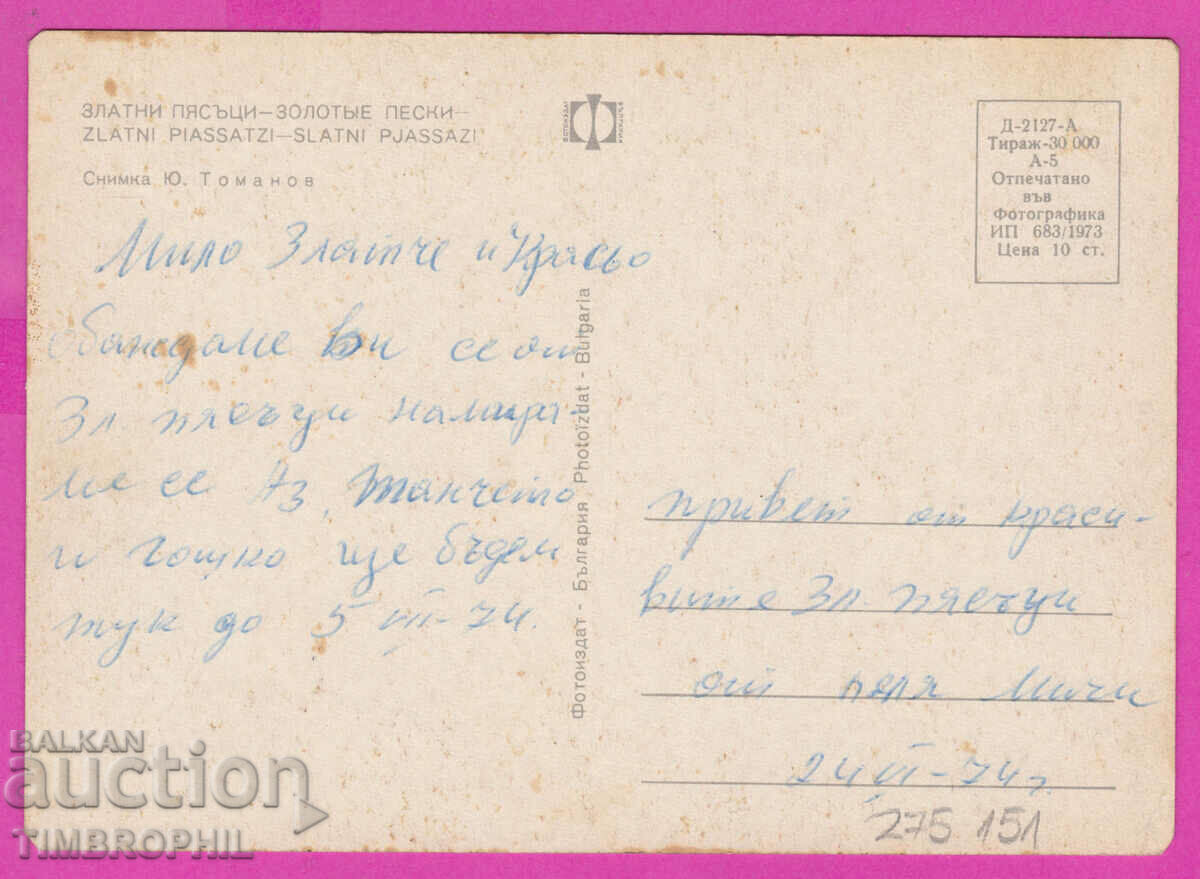 ЗЛАТНИ ПЯСЪЦИ—ЗОЛОТЫЕ ПЕСКИ—
ZLATNI PIASSATZI—SLATNI PJASSAZI
Снимка Ю. Томанов
ФОТОИЗДАТ
БЪЛГАРИЯ
Д-2127-А
Тираж-30 000
А-5
Отпечатано
във
Фотографика
ИП 683/1973
Цена 10 ст.
Мило Златче и Красьо
обаждаме ви се от
Зл. пясъци намира-
ме се Аз, Танчето
и Гошко ще бъдем
тук до 5 VII-74.
Фотоиздат - България Photoïzdat - Bulgaria
привет от краси-
вите Зл. пясъци
от леля Мичи
24 VI-74 г.
275 151
BALKAN
auction
TIMBROPHIL